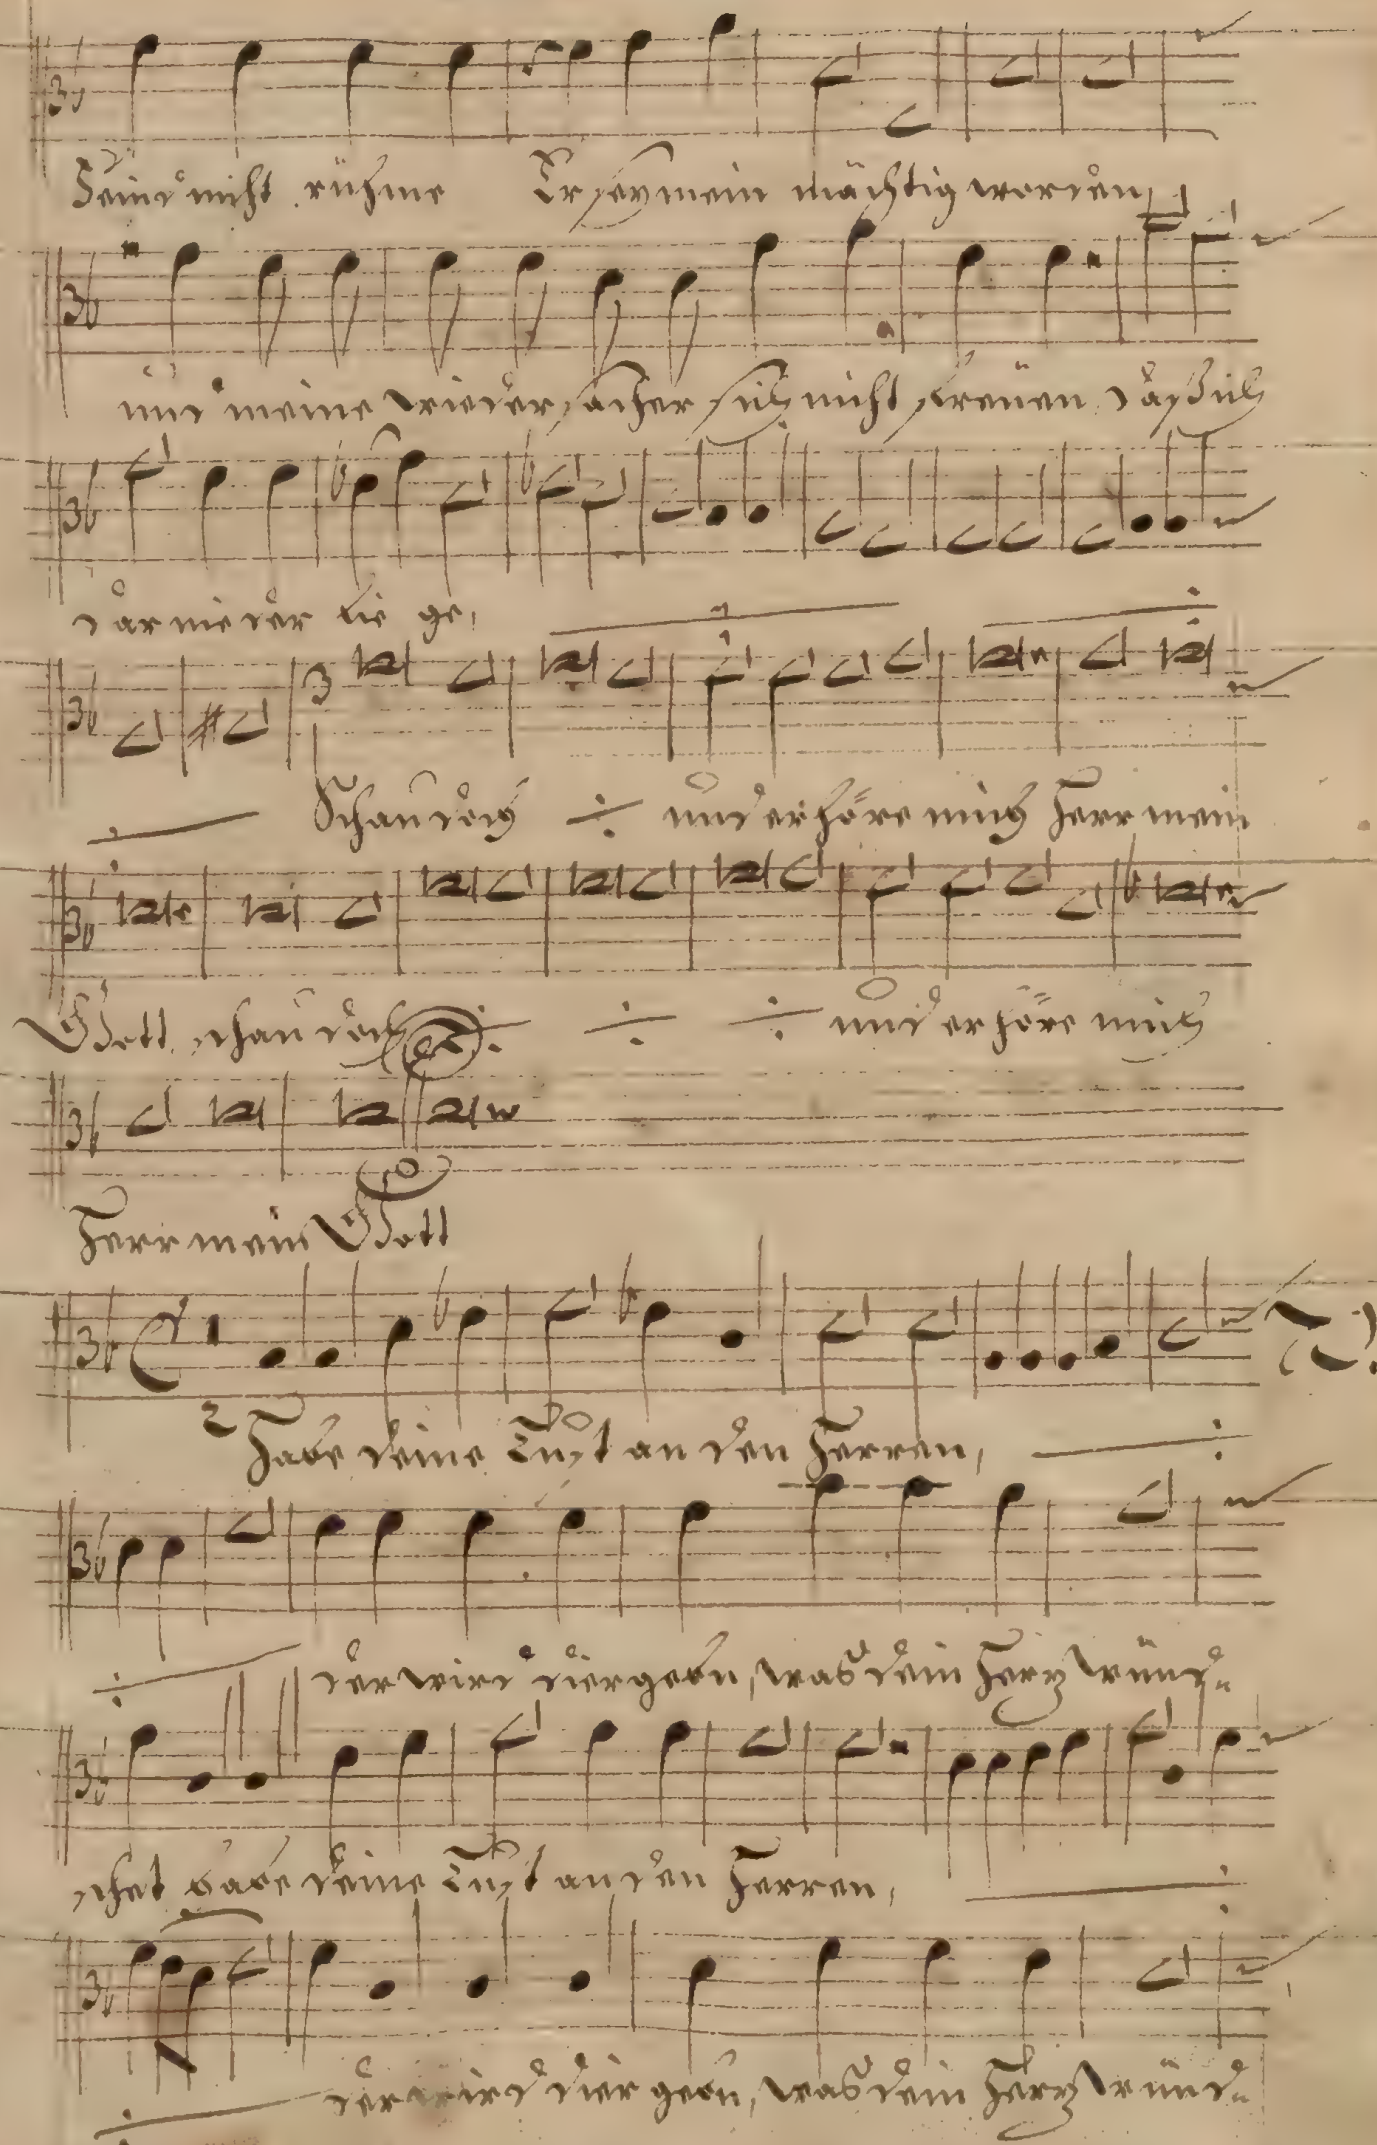 Feind nicht rühme Er sey mein mächtig worden,
und meine wiedersacher sich nicht freüen, daß ich
darnieder lie ge,
3
Schau doch ÷ und erhöre mich Herr mein
Gott, schau doch ÷ ÷ ÷ und erhöre mich
Herr mein Gott
Habe deine Lust an den Herren, ÷
÷ der wird dier gebn, was dein Hertz wünd=
schet habe deine Lust an den Herren, ÷
÷ der wird dier gebn, was dein Hertz wünd=